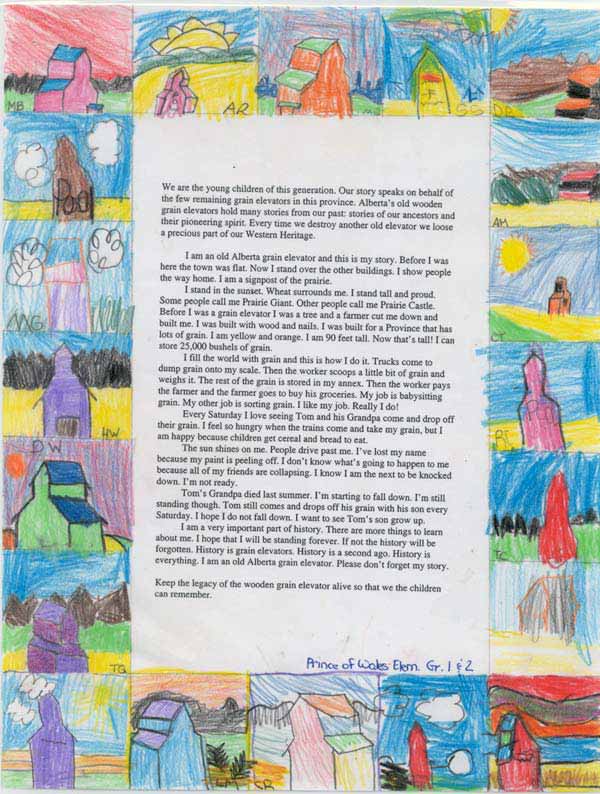 MB
AR
SS
DA
We are the young children of this generation. Our story speaks on behalf of
the few remaining grain elevators in this province. Alberta's old wooden
grain elevators hold many stories from our past: stories of our ancestors and
their pioneering spirit. Every time we destroy another old elevator we loose
a precious part of our Western Heritage.
I am an old Alberta grain elevator and this is my story. Before I was
here the town was flat. Now I stand over the other buildings. I show people
the way home. I am a signpost of the prairie.
I stand in the sunset. Wheat surrounds me. I stand tall and proud.
Some people call me Prairie Giant. Other people call me Prairie Castle.
Before I was a grain elevator I was a tree and a farmer cut me down and
built me. I was built with wood and nails. I was built for a Province that has
lots of grain. I am yellow and orange. I am 90 feet tall. Now that's tall! I can
store 25,000 bushels of grain.
I fill the world with grain and this is how I do it. Trucks come to
dump grain onto my scale. Then the worker scoops a little bit of grain and
weighs it. The rest of the grain is stored in my annex. Then the worker pays
the farmer and the farmer goes to buy his groceries. My job is babysitting
grain. My other job is sorting grain. I like my job. Really I do!
Every Saturday I love seeing Tom and his Grandpa come and drop off
their grain. I feel so hungry when the trains come and take my grain, but I
am happy because children get cereal and bread to eat.
The sun shines on me. People drive past me. I've lost my name
because my paint is peeling off. I don't know what's going to happen to me
because all of my friends are collapsing. I know I am the next to be knocked
down. I'm not ready.
Tom's Grandpa died last summer. I'm starting to fall down. I'm still
standing though. Tom still comes and drops off his grain with his son every
Saturday. I hope I do not fall down. I want to see Tom's son grow up.
I am a very important part of history. There are more things to learn
about me. I hope that I will be standing forever. If not the history will be
forgotten. History is grain elevators. History is a second ago. History is
everything. I am an old Alberta grain elevator. Please don't forget my story.
Keep the legacy of the wooden grain elevator alive so that we the children
can remember.
Prince of Wales Elem. Gr. 1 & 2
Pool
AM
DW
TG
CB